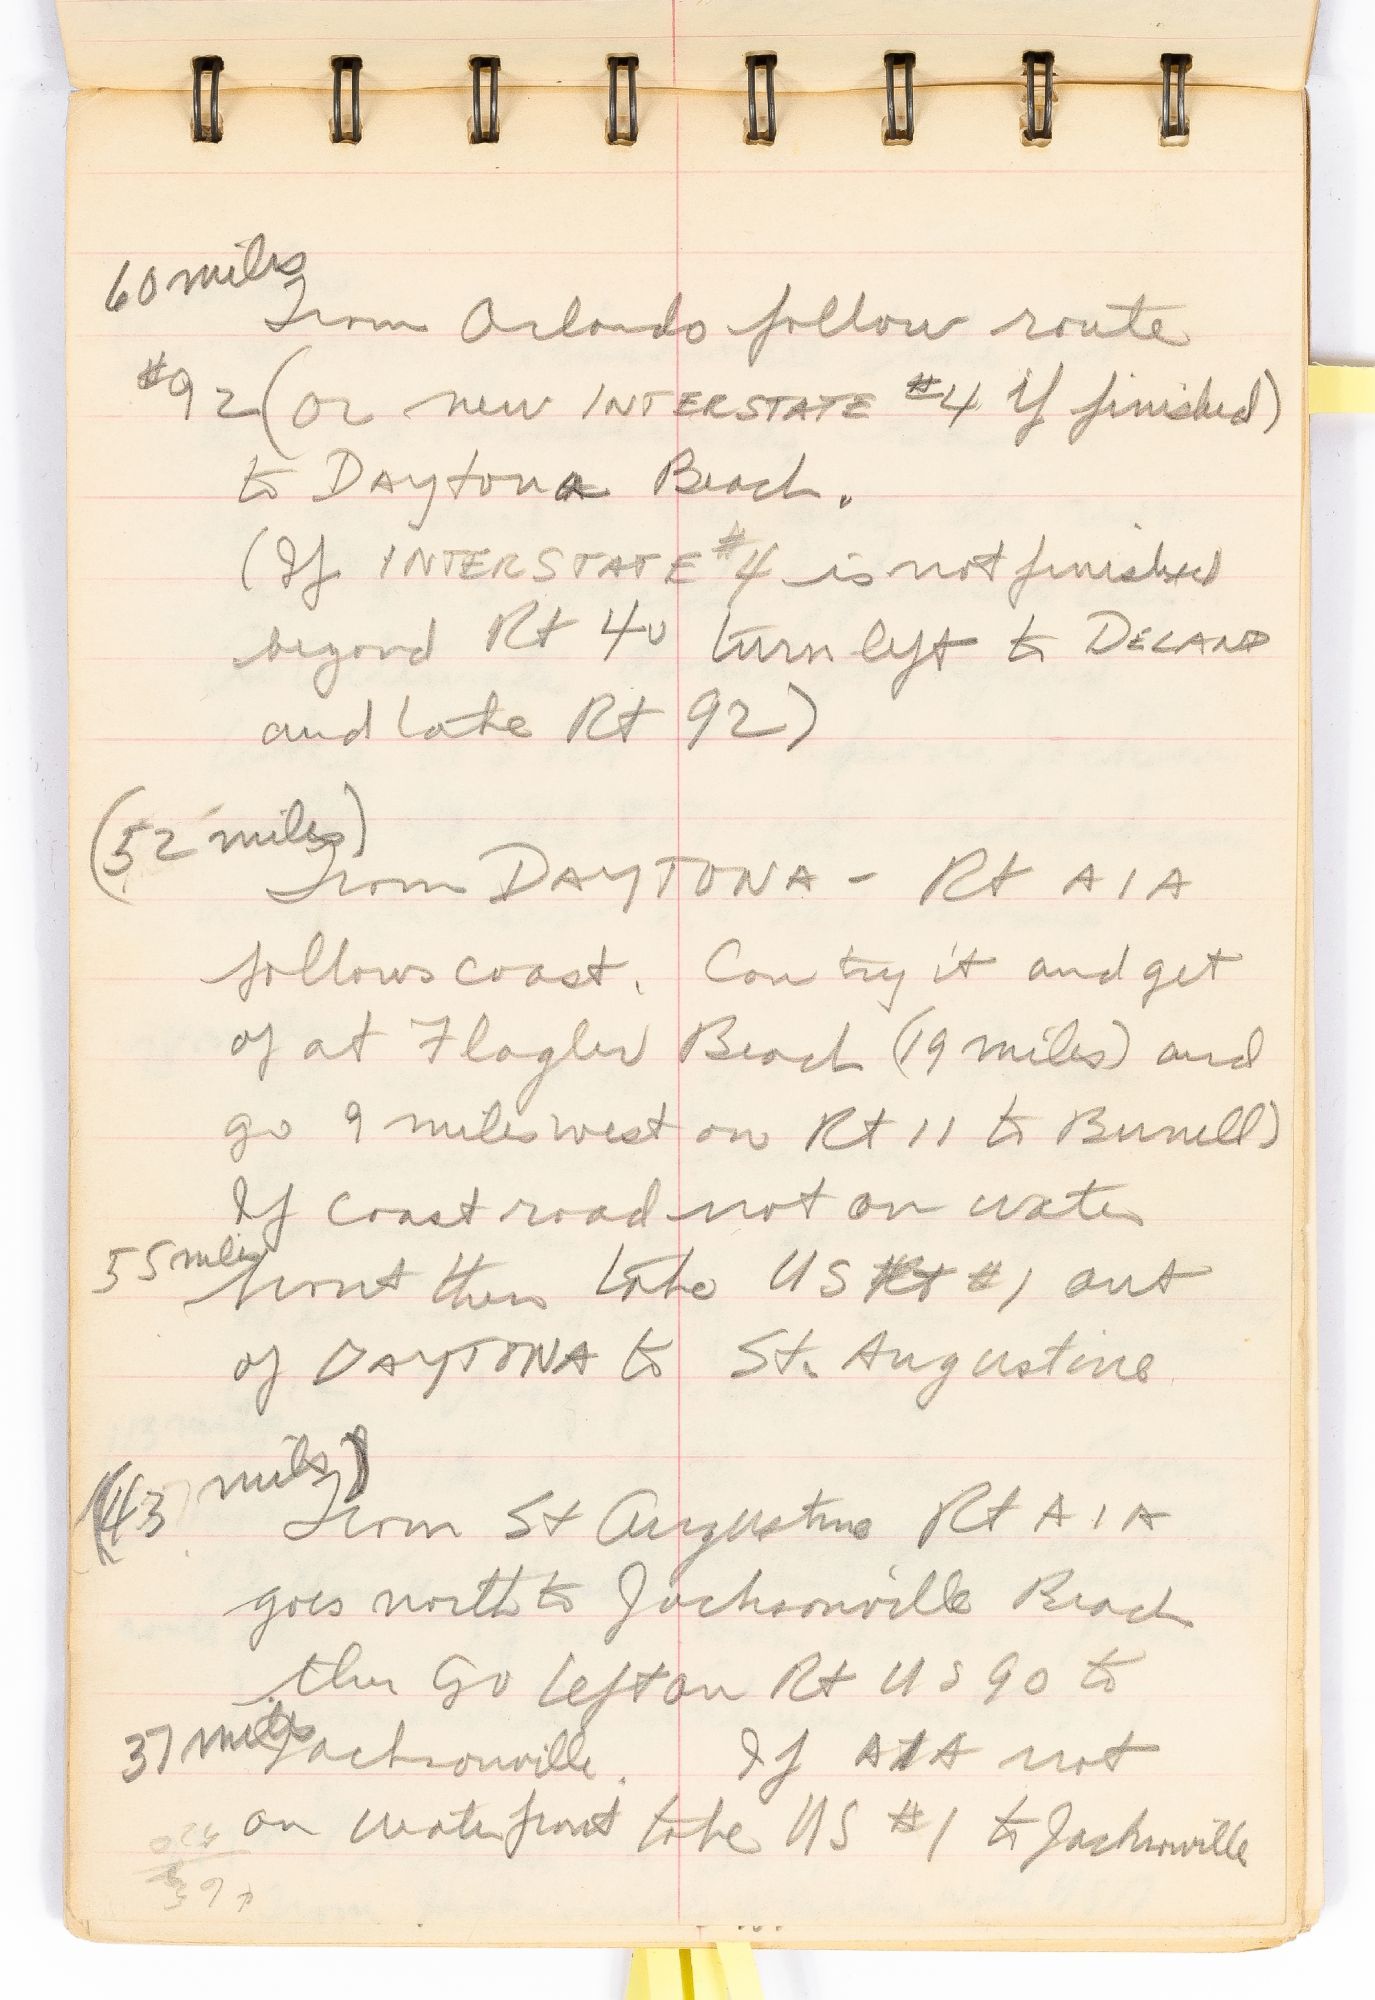 60 miles
From Orlando follow route
#92 (or new INTERSTATE #4 if finished)
to Daytona Beach.
(If INTERSTATE #4 is not finished
beyond Rt 40 turn left to DELAND
and take Rt 92)
(52 miles)
From DAYTONA - Rt A1A
follows coast. Can try it and get
of at Flagler Beach (19 miles) and
go 9 miles west on Rt 11 to Bunell)
If coast road not on water
55 miles front then take US Rt #1 out
of DAYTONA to St. Augustine
(43 miles)
From St Augustine Rt A1A
goes north to Jacksonville Beach
then Go left on Rt US 90 to
37 miles Jacksonville. If A1A not
on waterfront take US #1 to Jacksonville